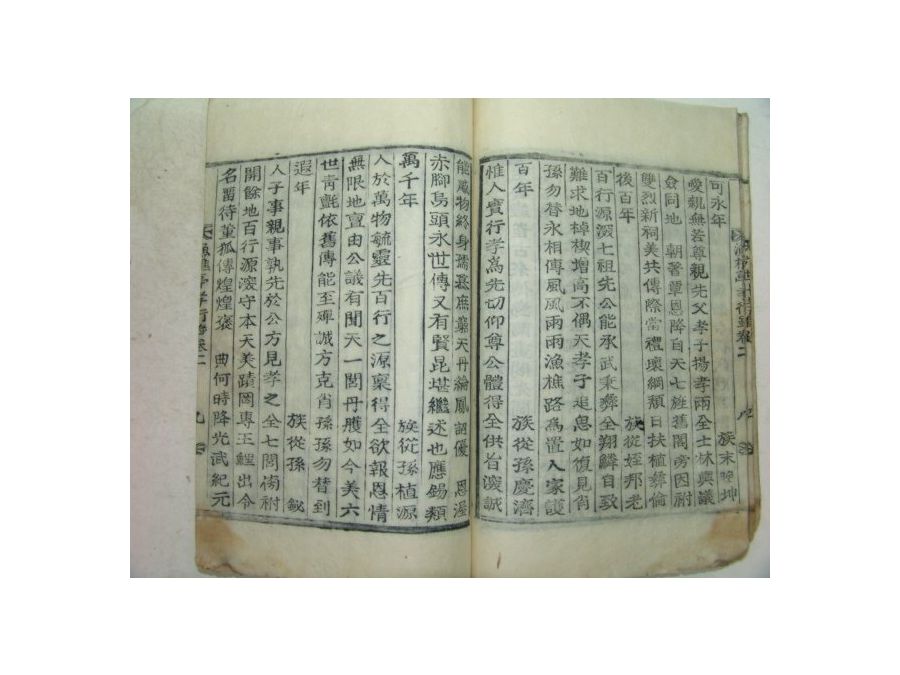 可永年 族末 坤
愛親無若尊親先父孝子揚孝兩全士林興議
僉同地 朝著覃恩降自天七 舊閣旁因祔
雙烈新祠美共傳際當禮壞綱頹日扶植彛倫
後百年 族從姪邦老
百行源深七祖先公能承武秉彛全翔鱗自致
難求地棹楔增高不偶天孝子追思如復見肖
孫勿替永相傳風風雨雨漁樵路為置人家護
百年 族從孫慶濟
惟人實行孝為先切仰尊公體得全供旨深誠
能 物終身孺慕庶 天丹綸鳳詔優 恩渥
赤脚烏頭永世傳又有賢昆堪繼述也應錫類
萬千年 族從孫植源
人於萬物毓靈先百行之源稟得全欲報恩情
無限地亶由公議有聞天一閭丹雘如今美六
世靑氈依舊傳能至殫誠方克肖孫孫勿替到
遐年 族從孫
人子事親事孰先於公方見孝之全七閭 祔
開餘地百行源深守本天美蹟岡專王鯉出令
名留待董狐傳煌煌褒 典何時降光武紀元
漁樵亭孝行 卷二 九